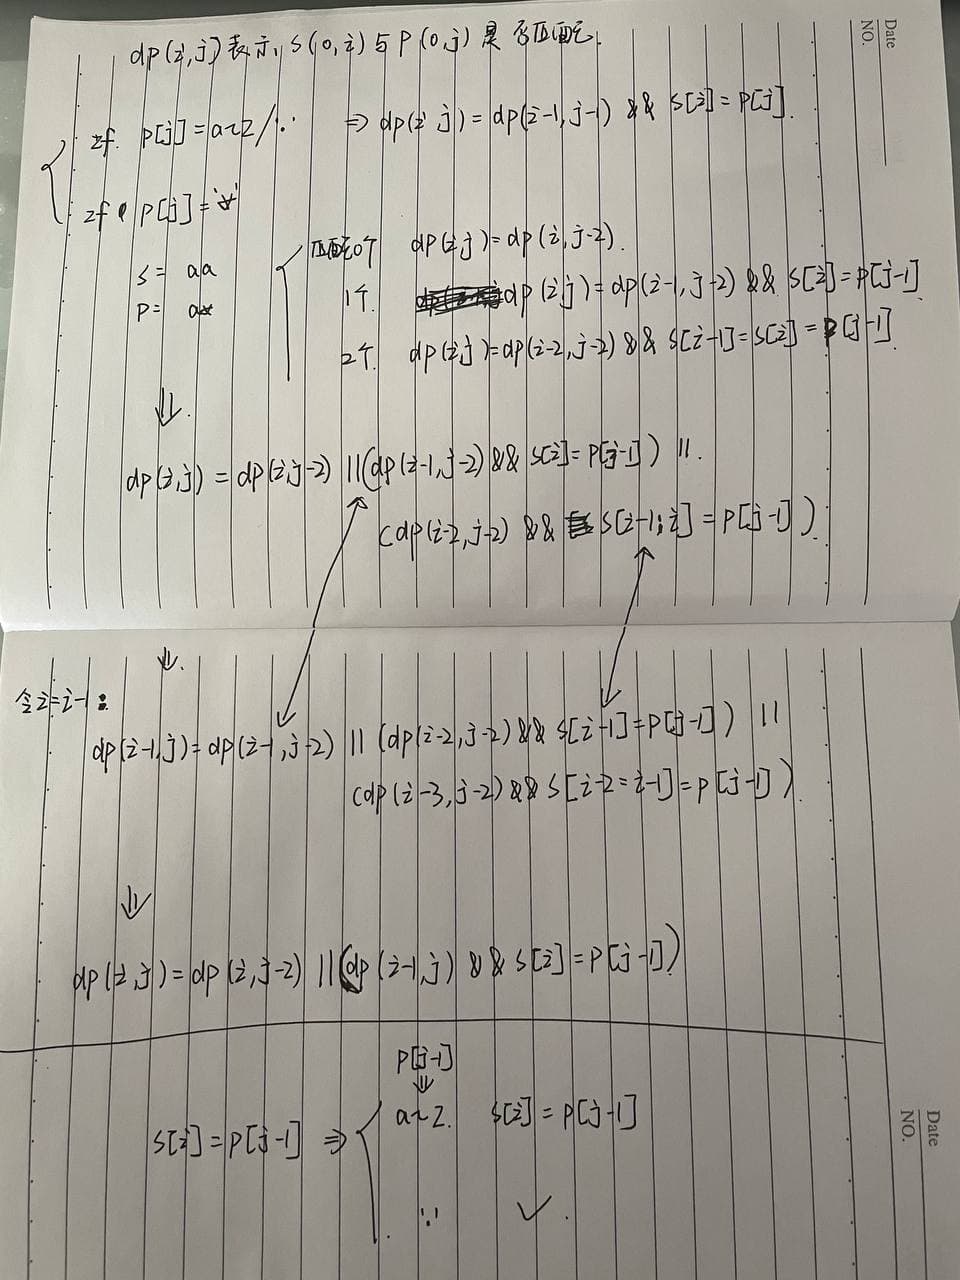 dp(i,j) 表示, s(0,i) 与 p(0,j) 是否匹配.
Date
NO.
if. p[j] = a~z / '.' ⇒ dp(i j) = dp(i-1, j-1) && s[i] = p[j].
if p[j] = '*'
匹配0个 dp(i,j) = dp(i, j-2).
s = aa
1个. dp(i,j) = dp(i-1, j-2) && s[i] = p[j-1].
p = a*
2个. dp(i,j) = dp(i-2, j-2) && s[i-1] = s[i] = p[j-1].
⇓.
dp(i,j) = dp(i,j-2) || (dp(i-1, j-2) && s[i] = p[j-1]) ||.
(dp(i-2, j-2) && s[i-1:i] = p[j-1]).
⇓.
令i=i-1:
dp(i-1,j) = dp(i-1,j-2) || (dp(i-2,j-2) && s[i-1] = p[j-1]) ||
(dp(i-3, j-2) && s[i-2=i-1] = p[j-1]).
⇓
dp(i,j) = dp(i,j-2) || (dp(i-1,j) && s[i] = p[j-1])
p[j-1]
⇓
a~z. s[i] = p[j-1]
s[i] = p[j-1] ⇒
'.' ✓.
Date
NO.